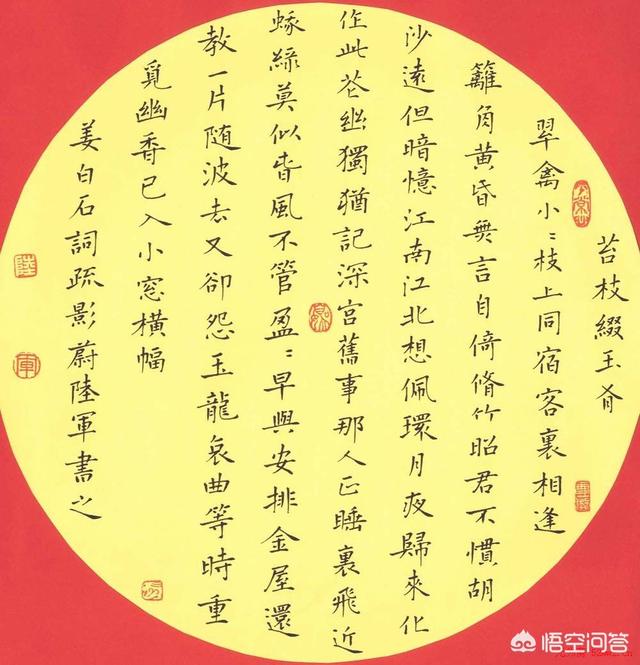 苔枝綴玉有
翠禽小〻枝上同宿客裏相逢
籬角黃昏無言自倚脩竹昭君不慣胡
沙遠但暗憶江南江北想佩環月夜歸來化
作此花幽獨猶記深宮舊事那人正睡裏飛近
蛾綠莫似春風不管盈〻早與安排金屋還
教一片隨波去又卻怨玉龍哀曲等時重
覓幽香已入小窓橫幅
姜白石詞疏影蔚陸軍書之
陸
軍
悟空问答